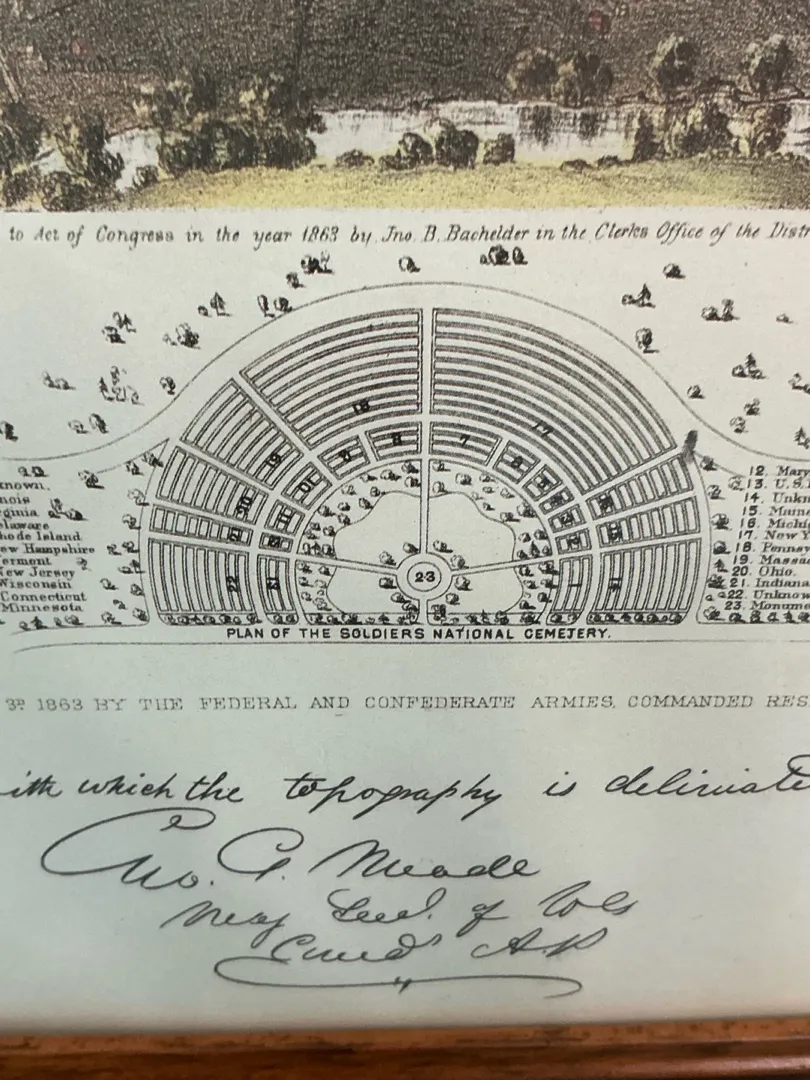 to Act of Congress in the year 1863 by Jno. B. Bachelder in the Clerks Office of the Distr
18
17
19
9
8
7
6
10
5
20
11
21
12
22
13
1
23
nown.
nois
rginia
elaware
hode Island
ew Hampshire
ermont
New Jersey
Wisconsin
Connecticut
Minnesota
12. Mary
13. U.S.
14. Unkn
15. Maine
16. Michi
17. New Y
18. Pennsy
19. Massac
20. Ohio.
21. Indiana
22. Unknow
23. Monume
PLAN OF THE SOLDIERS NATIONAL CEMETERY.
3D 1863 BY THE FEDERAL AND CONFEDERATE ARMIES, COMMANDED RES
ith which the topography is deliniate
Geo. G. Meade
Maj Genl. of Vols
Comdg A.P